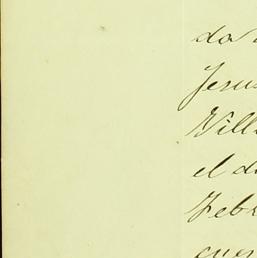 do
Jesus
Vill
el d
Febr
cues